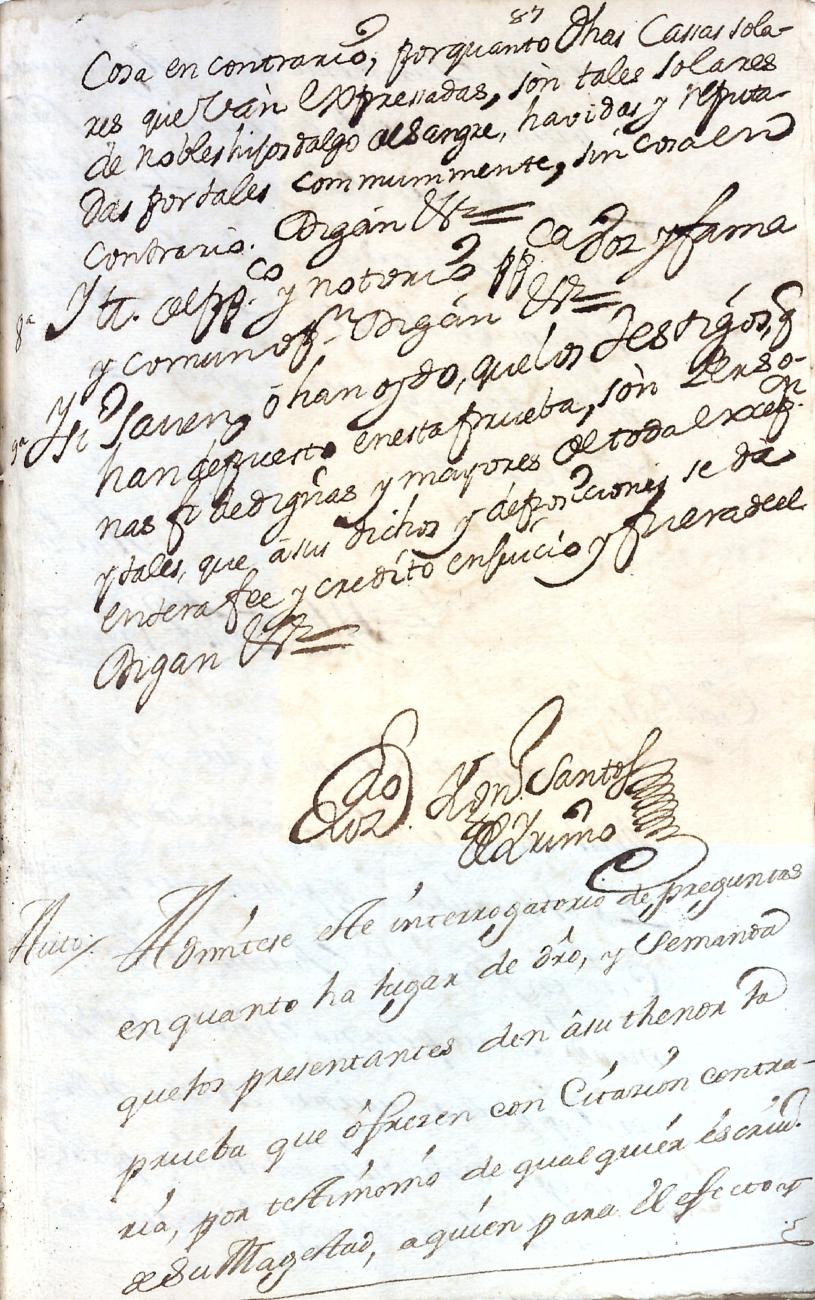 87
Cosa en contrario, porquanto dhas Cassas sola-
res que Ván expressadas, són tales solares
de nobles hijosdalgo de sangre, havidas y reputa-
das por tales commummente, sin cosa en
contrario. Digán &a=
8ª Ytt. de pp.co y notorio pp.ca voz y fama
y comun op.n Digán &a=
9ª Y si Saven, ó han oydo, que los Testigos, q
han depuesto en esta prueba, són Perso-
nas fidedignas y mayores de toda excep.n
y tales, que á sus dichos y deposiciones se dá
entera fee y credito en Juicio y fuera de el
Digan &a=
Santos
Auto/. Admítese este interrogatorio de preguntas
en quanto ha lugar de dro, y se manda
que los presentantes den â su thenor la
prueba que ofrezen con Citazión contra-
ria, por testimonio de qualquiér escriv.
de Su Magestad, a quien para el efecto y